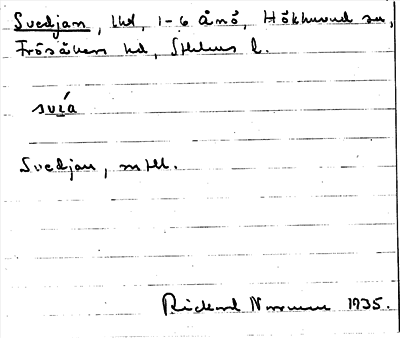 Svedjan, lhd, 1-6 Ånö, Hökhuvud sn,
Frösåkers hd, Sthlms l.
svɛ́a
Svedjan, mtll.
Rickard Norrman 1935.